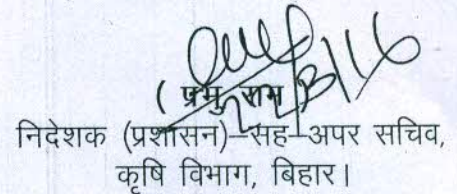 ( प्रभु राम )
निदेशक (प्रशासन)–सह–अपर सचिव,
कृषि विभाग, बिहार।